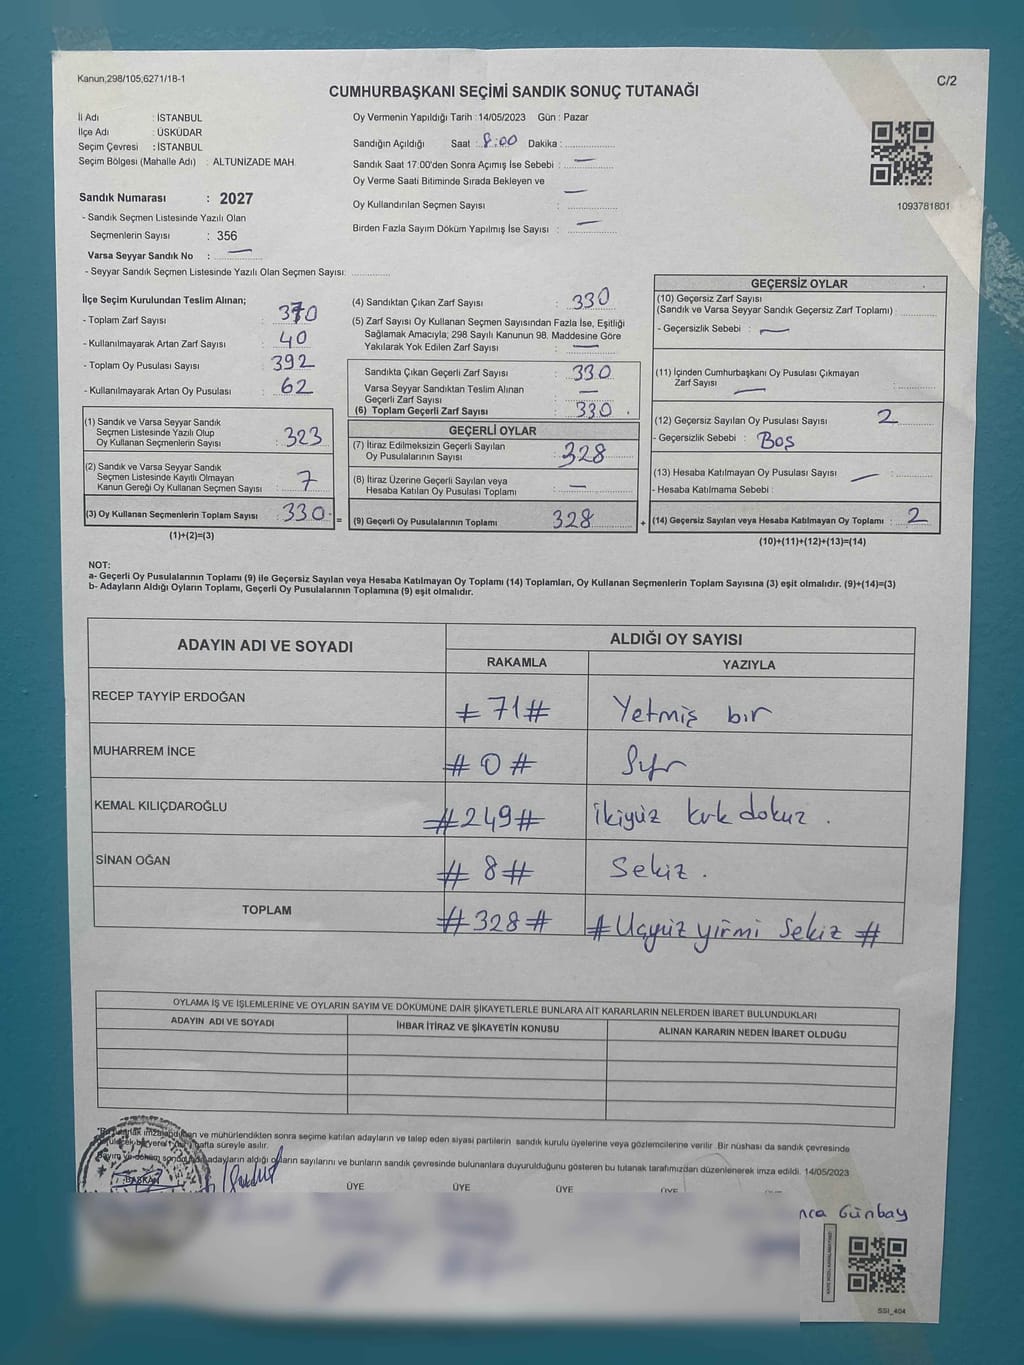 Kanun,298/105,6271/18-1
C/2
CUMHURBAŞKANI SEÇİMİ SANDIK SONUÇ TUTANAĞI
İl Adı : İSTANBUL
İlçe Adı : ÜSKÜDAR
Seçim Çevresi : İSTANBUL
Seçim Bölgesi (Mahalle Adı) : ALTUNİZADE MAH.
Sandık Numarası : 2027
- Sandık Seçmen Listesinde Yazılı Olan
Seçmenlerin Sayısı : 356
Varsa Seyyar Sandık No : —
- Seyyar Sandık Seçmen Listesinde Yazılı Olan Seçmen Sayısı: ..............
Oy Vermenin Yapıldığı Tarih : 14/05/2023 Gün : Pazar
Sandığın Açıldığı Saat : 8:00 Dakika : ..............
Sandık Saat 17:00'den Sonra Açımış İse Sebebi : —
Oy Verme Saati Bitiminde Sırada Bekleyen ve
Oy Kullandırılan Seçmen Sayısı : —
Birden Fazla Sayım Döküm Yapılmış İse Sayısı : —
1093781801
İlçe Seçim Kurulundan Teslim Alınan;
- Toplam Zarf Sayısı : 370
- Kullanılmayarak Artan Zarf Sayısı : 40
- Toplam Oy Pusulası Sayısı : 392
- Kullanılmayarak Artan Oy Pusulası : 62
(1) Sandık ve Varsa Seyyar Sandık
Seçmen Listesinde Yazılı Olup
Oy Kullanan Seçmenlerin Sayısı : 323
(2) Sandık ve Varsa Seyyar Sandık
Seçmen Listesinde Kayıtlı Olmayan
Kanun Gereği Oy Kullanan Seçmen Sayısı : 7
(3) Oy Kullanan Seçmenlerin Toplam Sayısı : 330 =
(1)+(2)=(3)
(4) Sandıktan Çıkan Zarf Sayısı : 330
(5) Zarf Sayısı Oy Kullanan Seçmen Sayısından Fazla İse, Eşitliği
Sağlamak Amacıyla; 298 Sayılı Kanunun 98. Maddesine Göre
Yakılarak Yok Edilen Zarf Sayısı : —
Sandıkta Çıkan Geçerli Zarf Sayısı : 330
Varsa Seyyar Sandıktan Teslim Alınan
Geçerli Zarf Sayısı : —
(6) Toplam Geçerli Zarf Sayısı : 330
GEÇERLİ OYLAR
(7) İtiraz Edilmeksizin Geçerli Sayılan
Oy Pusulalarının Sayısı : 328
(8) İtiraz Üzerine Geçerli Sayılan veya
Hesaba Katılan Oy Pusulası Toplamı : —
(9) Geçerli Oy Pusulalarının Toplamı 328 +
GEÇERSİZ OYLAR
(10) Geçersiz Zarf Sayısı
(Sandık ve Varsa Seyyar Sandık Geçersiz Zarf Toplamı) : ..............
- Geçersizlik Sebebi : —
(11) İçinden Cumhurbaşkanı Oy Pusulası Çıkmayan
Zarf Sayısı : —
(12) Geçersiz Sayılan Oy Pusulası Sayısı : 2
- Geçersizlik Sebebi : Boş
(13) Hesaba Katılmayan Oy Pusulası Sayısı : —
- Hesaba Katılmama Sebebi :
(14) Geçersiz Sayılan veya Hesaba Katılmayan Oy Toplamı : 2
(10)+(11)+(12)+(13)=(14)
NOT:
a- Geçerli Oy Pusulalarının Toplamı (9) ile Geçersiz Sayılan veya Hesaba Katılmayan Oy Toplamı (14) Toplamları, Oy Kullanan Seçmenlerin Toplam Sayısına (3) eşit olmalıdır. (9)+(14)=(3)
b- Adayların Aldığı Oyların Toplamı, Geçerli Oy Pusulalarının Toplamına (9) eşit olmalıdır.
ADAYIN ADI VE SOYADI
ALDIĞI OY SAYISI
RAKAMLA YAZIYLA
RECEP TAYYİP ERDOĞAN #71# Yetmiş bir
MUHARREM İNCE #0# Sıfır
KEMAL KILIÇDAROĞLU #249# ikiyüz kırk dokuz.
SİNAN OĞAN #8# Sekiz.
TOPLAM #328# #Üçyüz yirmi Sekiz #
OYLAMA İŞ VE İŞLEMLERİNE VE OYLARIN SAYIM VE DÖKÜMÜNE DAİR ŞİKAYETLERLE BUNLARA AİT KARARLARIN NELERDEN İBARET BULUNDUKLARI
ADAYIN ADI VE SOYADI İHBAR İTİRAZ VE ŞİKAYETİN KONUSU ALINAN KARARIN NEDEN İBARET OLDUĞU
ve mühürlendikten sonra seçime katılan adayların ve talep eden siyasi partilerin sandık kurulu üyelerine veya gözlemcilerine verilir. Bir nüshası da sandık çevresinde
hafta süreyle asılır.
adayların aldığı oyların sayılarını ve bunların sandık çevresinde bulunanlara duyurulduğunu gösteren bu tutanak tarafımızdan düzenlenerek imza edildi. 14/05/2023
BAŞKAN ÜYE ÜYE ÜYE ÜYE
Günbay
SSI_404